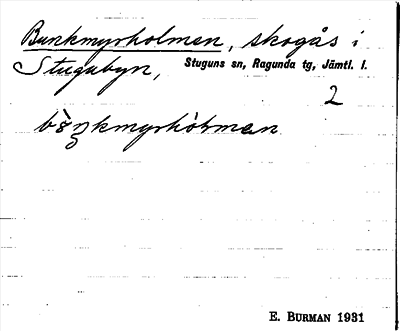 Bunkmyrholmen, skogås i
Stugubyn, Stuguns sn, Ragunda tg, Jämtl. l.
2
E. BURMAN 1931